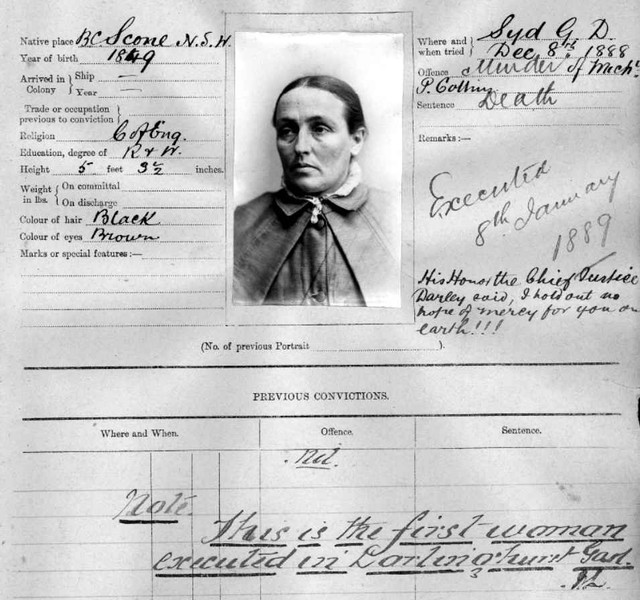 Native place BC Scone N.S.W.
Year of birth 1849
Arrived in Colony } Ship —
Year —
Trade or occupation previous to conviction }
Religion C of Eng.
Education, degree of R & W.
Height 5 feet 3½ inches.
Weight in lbs. { On committal
On discharge
Colour of hair Black
Colour of eyes Brown
Marks or special features:—
Where and when tried } Syd G. D.
Dec. 8th 1888
Offence Murder of Mich!
P. Collins
Sentence Death
Remarks:—
Executed
8th January
1889
His Honor the Chief Justice
Darley said, I hold out no
hope of mercy for you on
earth!!!
(No. of previous Portrait ).
PREVIOUS CONVICTIONS.
Where and When. Offence. Sentence.
Nil.
Note
This is the first woman
executed in Darlinghurst Gaol.